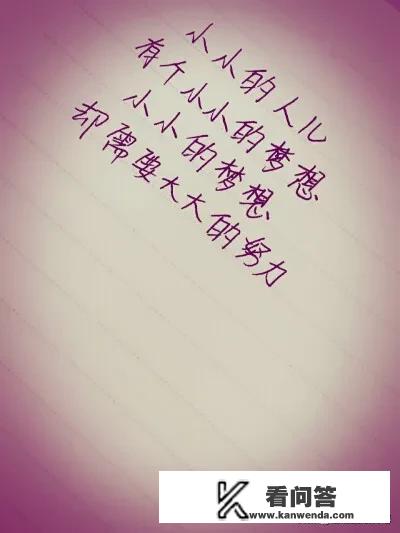 小小的人儿
有个小小的梦想
小小的梦想
却需要大大的努力
看问答
www.kanwenda.com